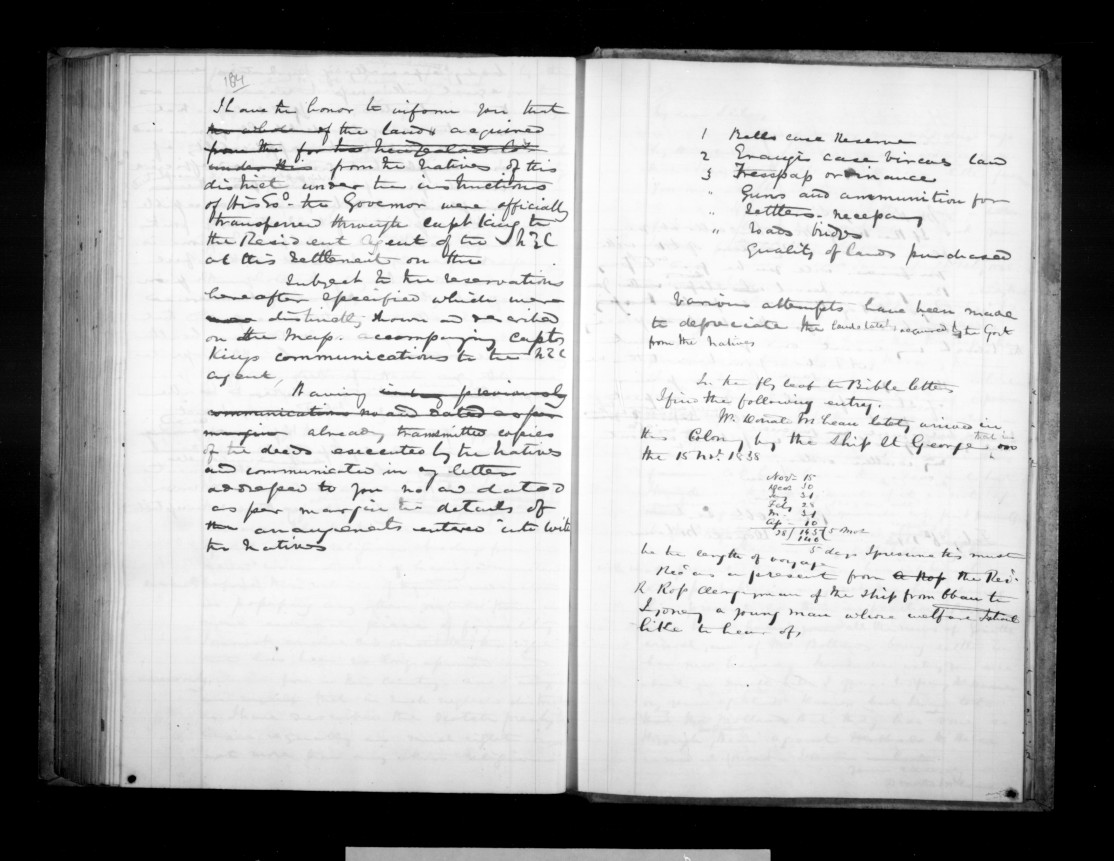 184
I have the honor to inform you that
the whole of the lands acquired
from the for the New Zealand Co
under the from the Natives of this
district under the instructions
of His Exo. the Governor were officially
transferred through Capt King to
the Resident Agent of the NZC
at this Settlement on the
Subject to the reservations
hereafter specified which were
distinctly shown and described
on the map accompanying Capt
Kings communications to the NZC
agent.
Having previously
communications no and dated as per
margin already transmitted copies
of the deeds executed by the Natives
and communicated in my letters
addressed to you no and dated
as per margin the details of
the arrangements entered into with
the Natives
1 Bells case Reserve
2 case law
3 Tresspass ordinance
" Guns and ammunition for
" Settlers necessary
" Roads bridges
Quality of lands purchased
Various attempts have been made
to depreciate the lands lately acquired by the Govt
from the Natives
In the fly leaf to Bible letters
I find the following entry.
Mr. Donald McLean lately arrived in
this Colony by the Ship St George that is
the 15 Novr. 1838
Novr 15
Decr 30
Jany 31
Feby 28
M. 31
Ap - 10
145 5 Mos
140
5 days I presume this must
be the length of voyage
as a present from a Ross the Revd.
R Ross Clergyman of the Ship from Oban to
Sydney a young man whose welfare I shall
like to hear of,